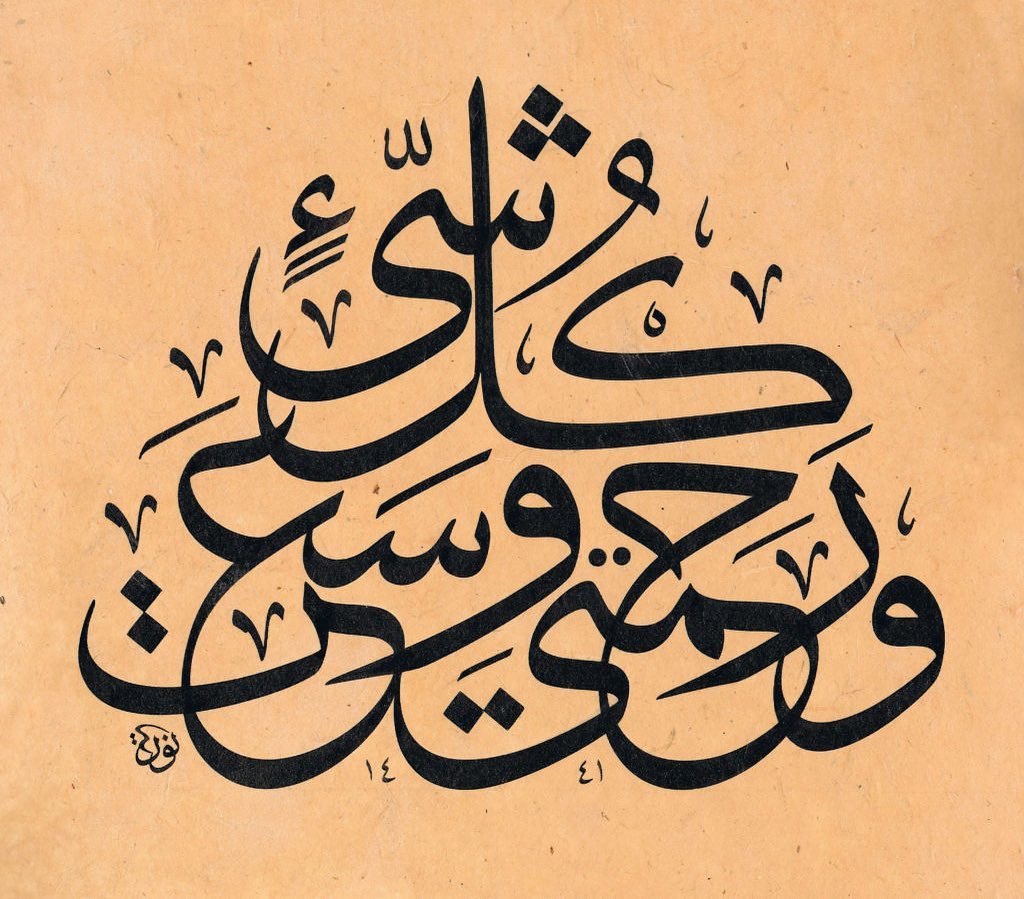 وَرَحْمَتِي وَسِعَتْ كُلَّ شَيْءٍ
١٤ ٤١